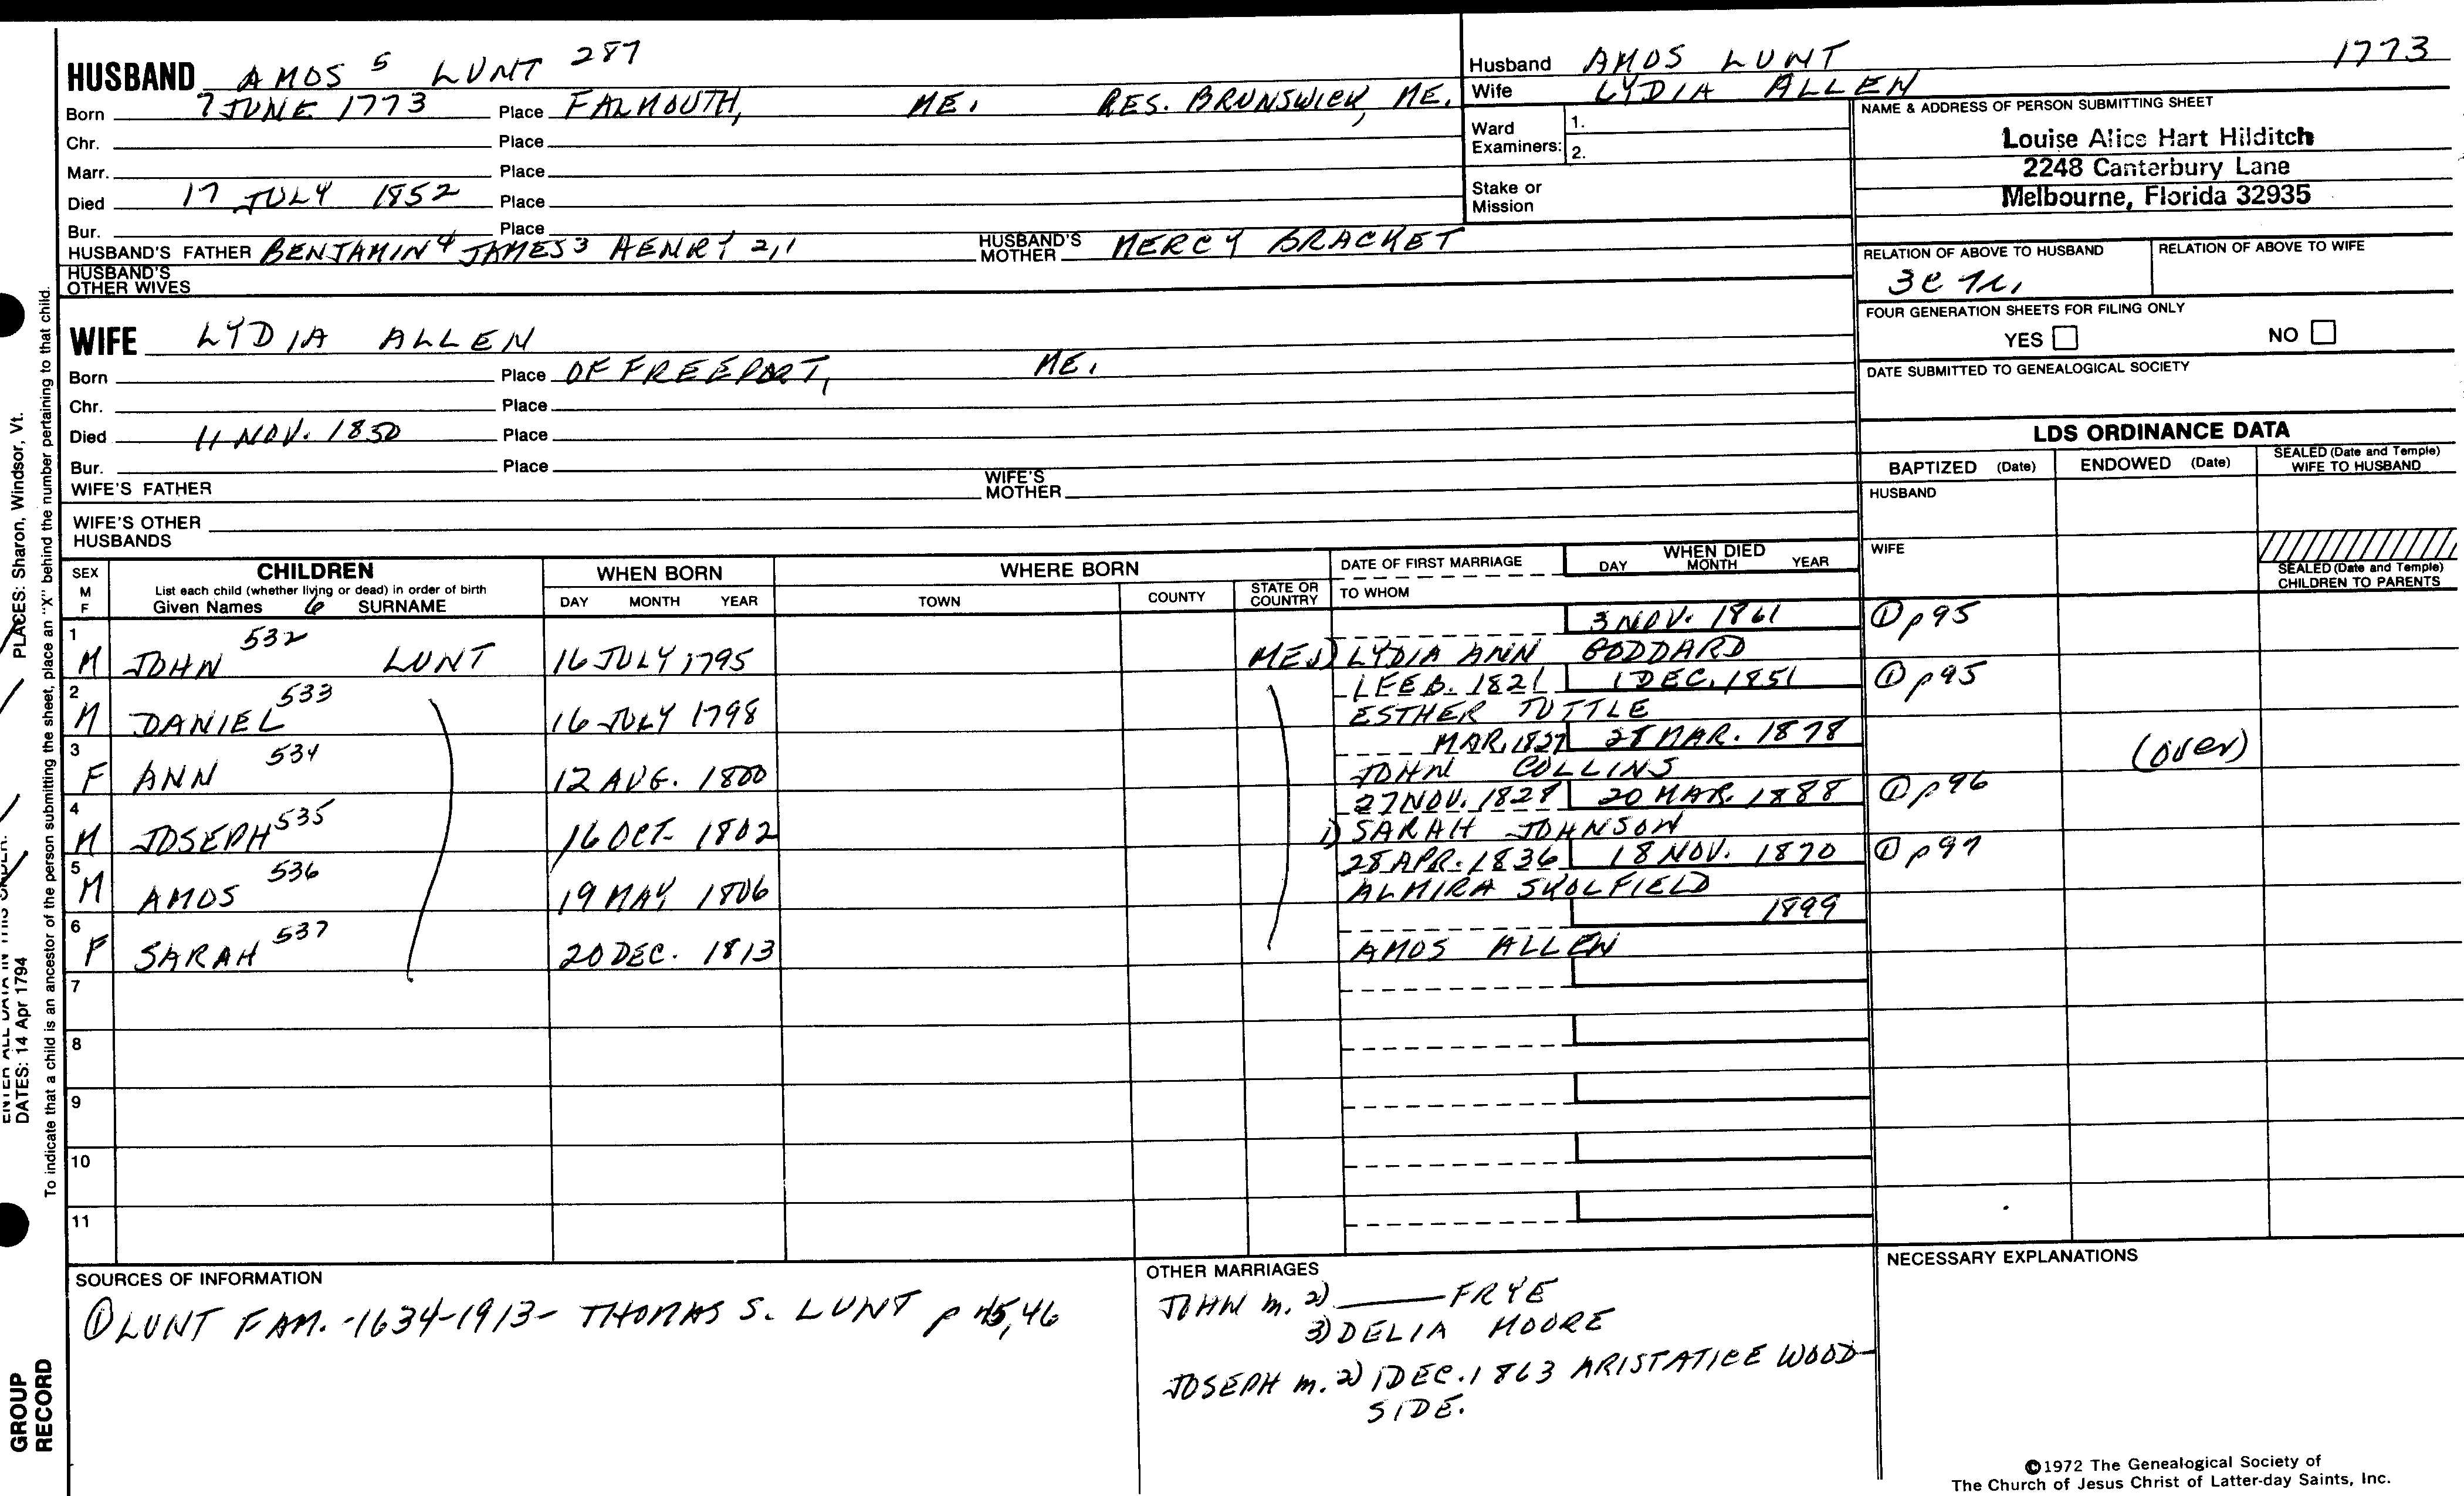 HUSBAND AMOS 5 LUNT 287
Born 7 JUNE 1773 Place FALMOUTH, ME. RES. BRUNSWICK, ME.
Chr. Place
Marr. Place
Died 17 JULY 1852 Place
Bur. Place
HUSBAND'S FATHER BENJAMIN 4 JAMES 3 HENRY 2,1 HUSBAND'S MOTHER MERCY BRACKET
HUSBAND'S OTHER WIVES
Husband AMOS LUNT 1773
Wife LYDIA ALLEN
Ward Examiners: 1.
2.
Stake or Mission
NAME & ADDRESS OF PERSON SUBMITTING SHEET
Louise Alice Hart Hilditch
2248 Canterbury Lane
Melbourne, Florida 32935
RELATION OF ABOVE TO HUSBAND RELATION OF ABOVE TO WIFE
FOUR GENERATION SHEETS FOR FILING ONLY
YES NO
DATE SUBMITTED TO GENEALOGICAL SOCIETY
WIFE LYDIA ALLEN
Born Place OF FREEPORT, ME.
Chr. Place
Died 11 NOV. 1850 Place
Bur. Place
WIFE'S FATHER WIFE'S MOTHER
WIFE'S OTHER HUSBANDS
LDS ORDINANCE DATA
BAPTIZED (Date) ENDOWED (Date) SEALED (Date and Temple) WIFE TO HUSBAND
HUSBAND
WIFE
SEALED (Date and Temple) CHILDREN TO PARENTS
SEX M F CHILDREN WHEN BORN WHERE BORN DATE OF FIRST MARRIAGE WHEN DIED
List each child (whether living or dead) in order of birth
Given Names 6 SURNAME DAY MONTH YEAR TOWN COUNTY STATE OR COUNTRY TO WHOM DAY MONTH YEAR
1 3 NOV. 1861 ① p 95
M JOHN 532 LUNT 16 JULY 1795 ME 1) LYDIA ANN GODDARD
2 1 FEB. 1821 1 DEC. 1851 ① p 95
M DANIEL 533 16 JULY 1798 ESTHER TUTTLE
3 MAR. 1827 28 MAR. 1878 (over)
F ANN 534 12 AUG. 1800 JOHN COLLINS
4 27 NOV. 1828 20 MAR. 1888 ① p 96
M JOSEPH 535 16 OCT. 1802 1) SARAH JOHNSON
5 28 APR. 1836 18 NOV. 1870 ① p 97
M AMOS 536 19 MAY 1806 ALMIRA SKOLFIELD
6 1899
F SARAH 537 20 DEC. 1813 AMOS ALLEN
7
8
9
10
11
SOURCES OF INFORMATION
① LUNT FAM. - 1634-1913 - THOMAS S. LUNT p 45,46
OTHER MARRIAGES
JOHN m. 2) ——— FRYE
3) DELIA MOORE
JOSEPH m. 2) 1 DEC. 1863 ARISTATICE WOOD-
SIDE.
NECESSARY EXPLANATIONS
©1972 The Genealogical Society of
The Church of Jesus Christ of Latter-day Saints, Inc.
PLACES: Sharon, Windsor, Vt.
DATES: 14 Apr 1794
To indicate that a child is an ancestor of the person submitting the sheet, place an "X" behind the number pertaining to that child.
GROUP
RECORD